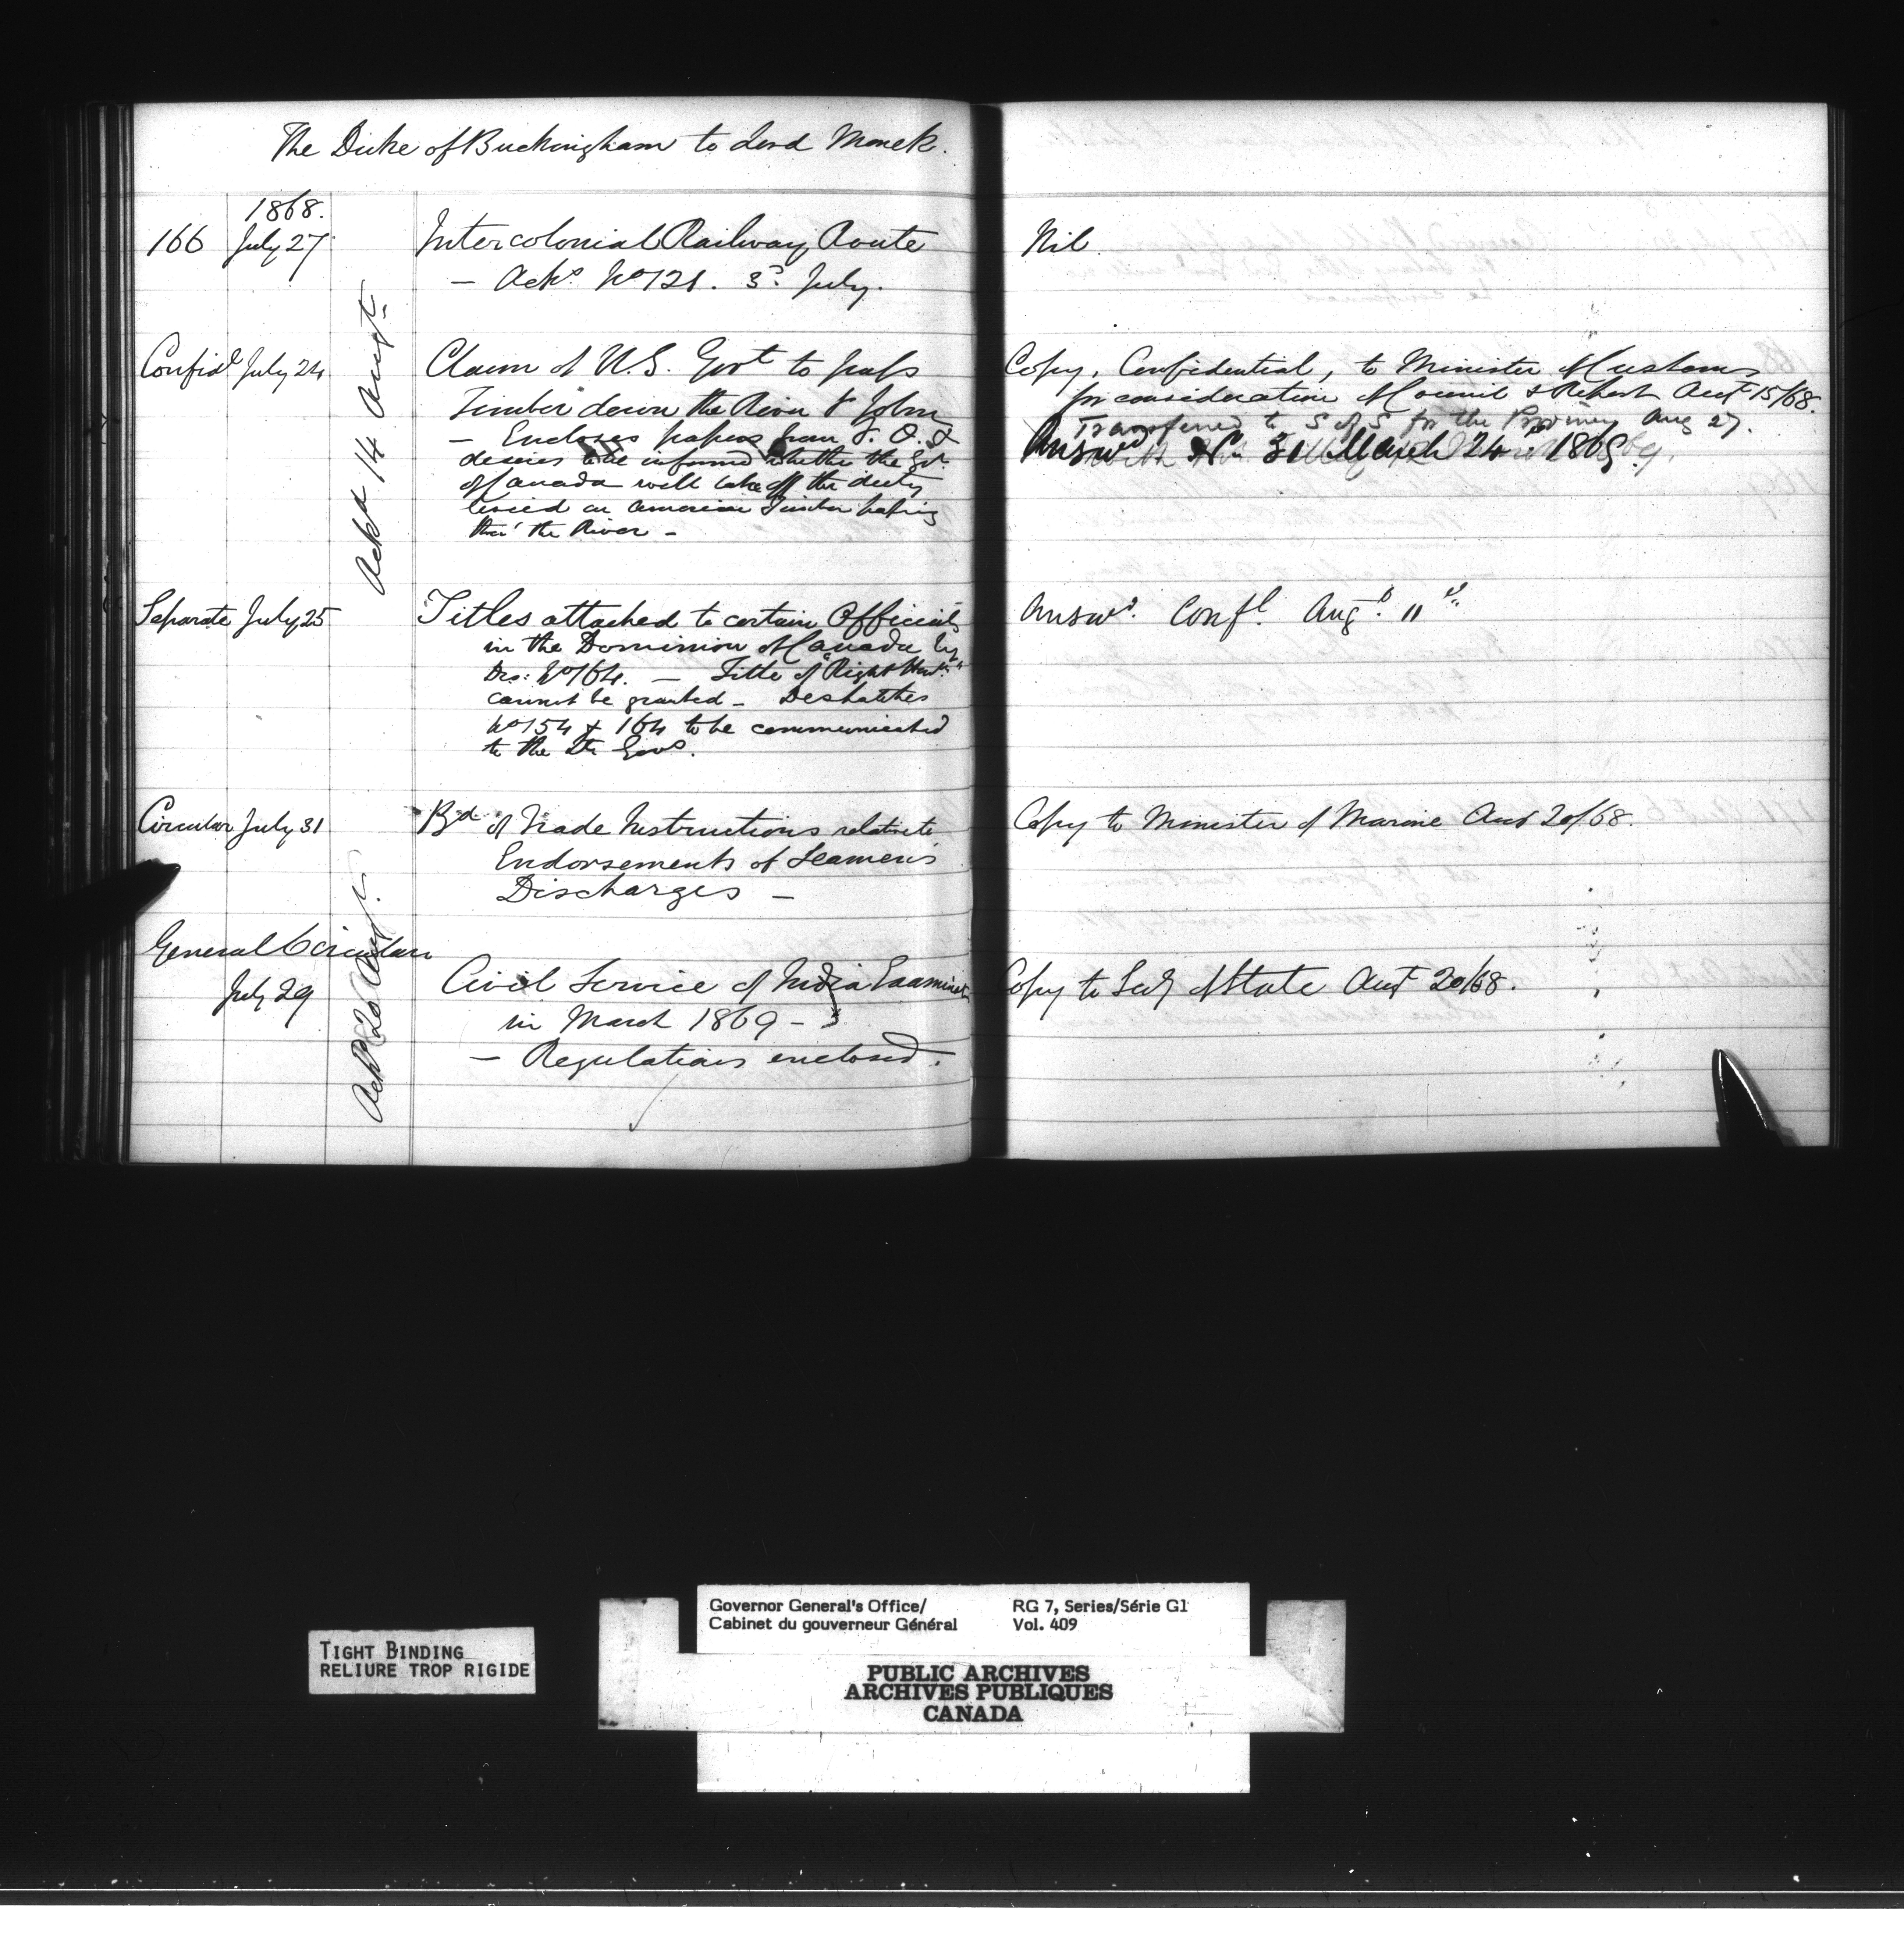 The Duke of Buckingham to Lord Monck.
1868.
166 July 27 Intercolonial Railway Route
— Ackg No 121. 3d July.
Nil
Ackd 14 Augt
Confidl July 24 Claim of U.S. Govt to pass
Timber down the River St John
— Encloses papers from F. O. &
desires to be informed whether the Govt
of Canada will take off the duty
levied on American Timber passing
thro' the River —
Copy, Confidential, to Minister of Customs
for consideration of Council & Report Augt 15/68.
Transferred to S of S for the Provinces Aug 27.
Answd No 31 March 24 1869
Separate July 25 Titles attached to certain Officials
in the Dominion of Canada by
Des: No 164. — Title of "Right Honble"
cannot be granted — Despatches
No 154 & 164 to be communicated
to the Lt Govs.
Answd. Confl. Augt. 11th
Circular July 31 Bd of Trade Instructions relative to
Endorsements of Seamen's
Discharges —
Copy to Minister of Marine Augt 20/68.
Ackd 20 Augt
General Circular
July 29 Civil Service of India Examinatn
in March 1869 —
— Regulations enclosed.
Copy to Secy of State Augt 20/68.
TIGHT BINDING
RELIURE TROP RIGIDE
Governor General's Office/
Cabinet du gouverneur Général
RG 7, Series/Série G1
Vol. 409
PUBLIC ARCHIVES
ARCHIVES PUBLIQUES
CANADA